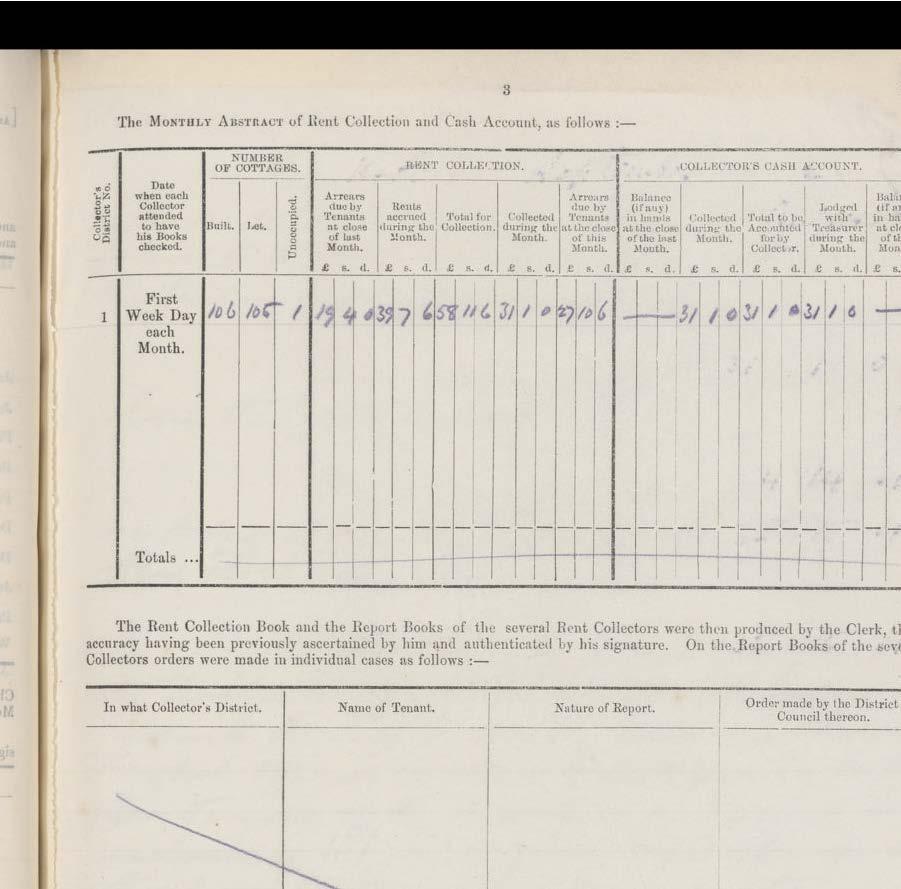 3
The MONTHLY ABSTRACT of Rent Collection and Cash Account, as follows :—
Collector's District No.
Date when each Collector attended to have his Books checked.
NUMBER OF COTTAGES.
Built. Let. Unoccupied.
RENT COLLECTION.
Arrears due by Tenants at close of last Month. £ s. d.
Rents accrued during the Month. £ s. d.
Total for Collection. £ s. d.
Collected during the Month. £ s. d.
Arrears due by Tenants at the close of this Month. £ s. d.
COLLECTOR'S CASH ACCOUNT.
Balance (if any) in hands at the close of the last Month. £ s. d.
Collected during the Month. £ s. d.
Total to be Accounted for by Collector. £ s. d.
Lodged with Treasurer during the Month. £ s. d.
£ s.
1 First Week Day each Month. 106 105 1 19 4 0 39 7 6 58 11 6 31 1 0 27 10 6 — 31 1 0 31 1 0 31 1 0 —
Totals ...
The Rent Collection Book and the Report Books of the several Rent Collectors were then produced by the Clerk, th
accuracy having been previously ascertained by him and authenticated by his signature. On the Report Books of the seve
Collectors orders were made in individual cases as follows :—
In what Collector's District. Name of Tenant. Nature of Report. Order made by the District
Council thereon.